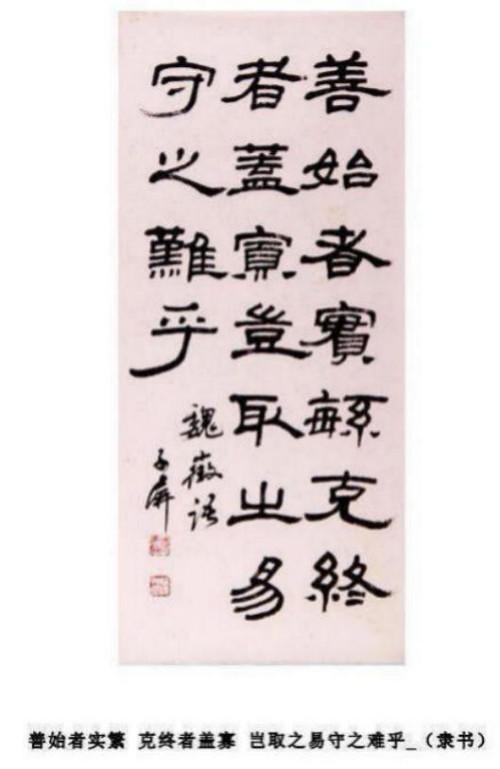 善始者實繇克終
者蓋寡豈取之易
守之難乎
魏徵语
子屏
善始者实繁 克终者盖寡 岂取之易守之难乎_（隶书）